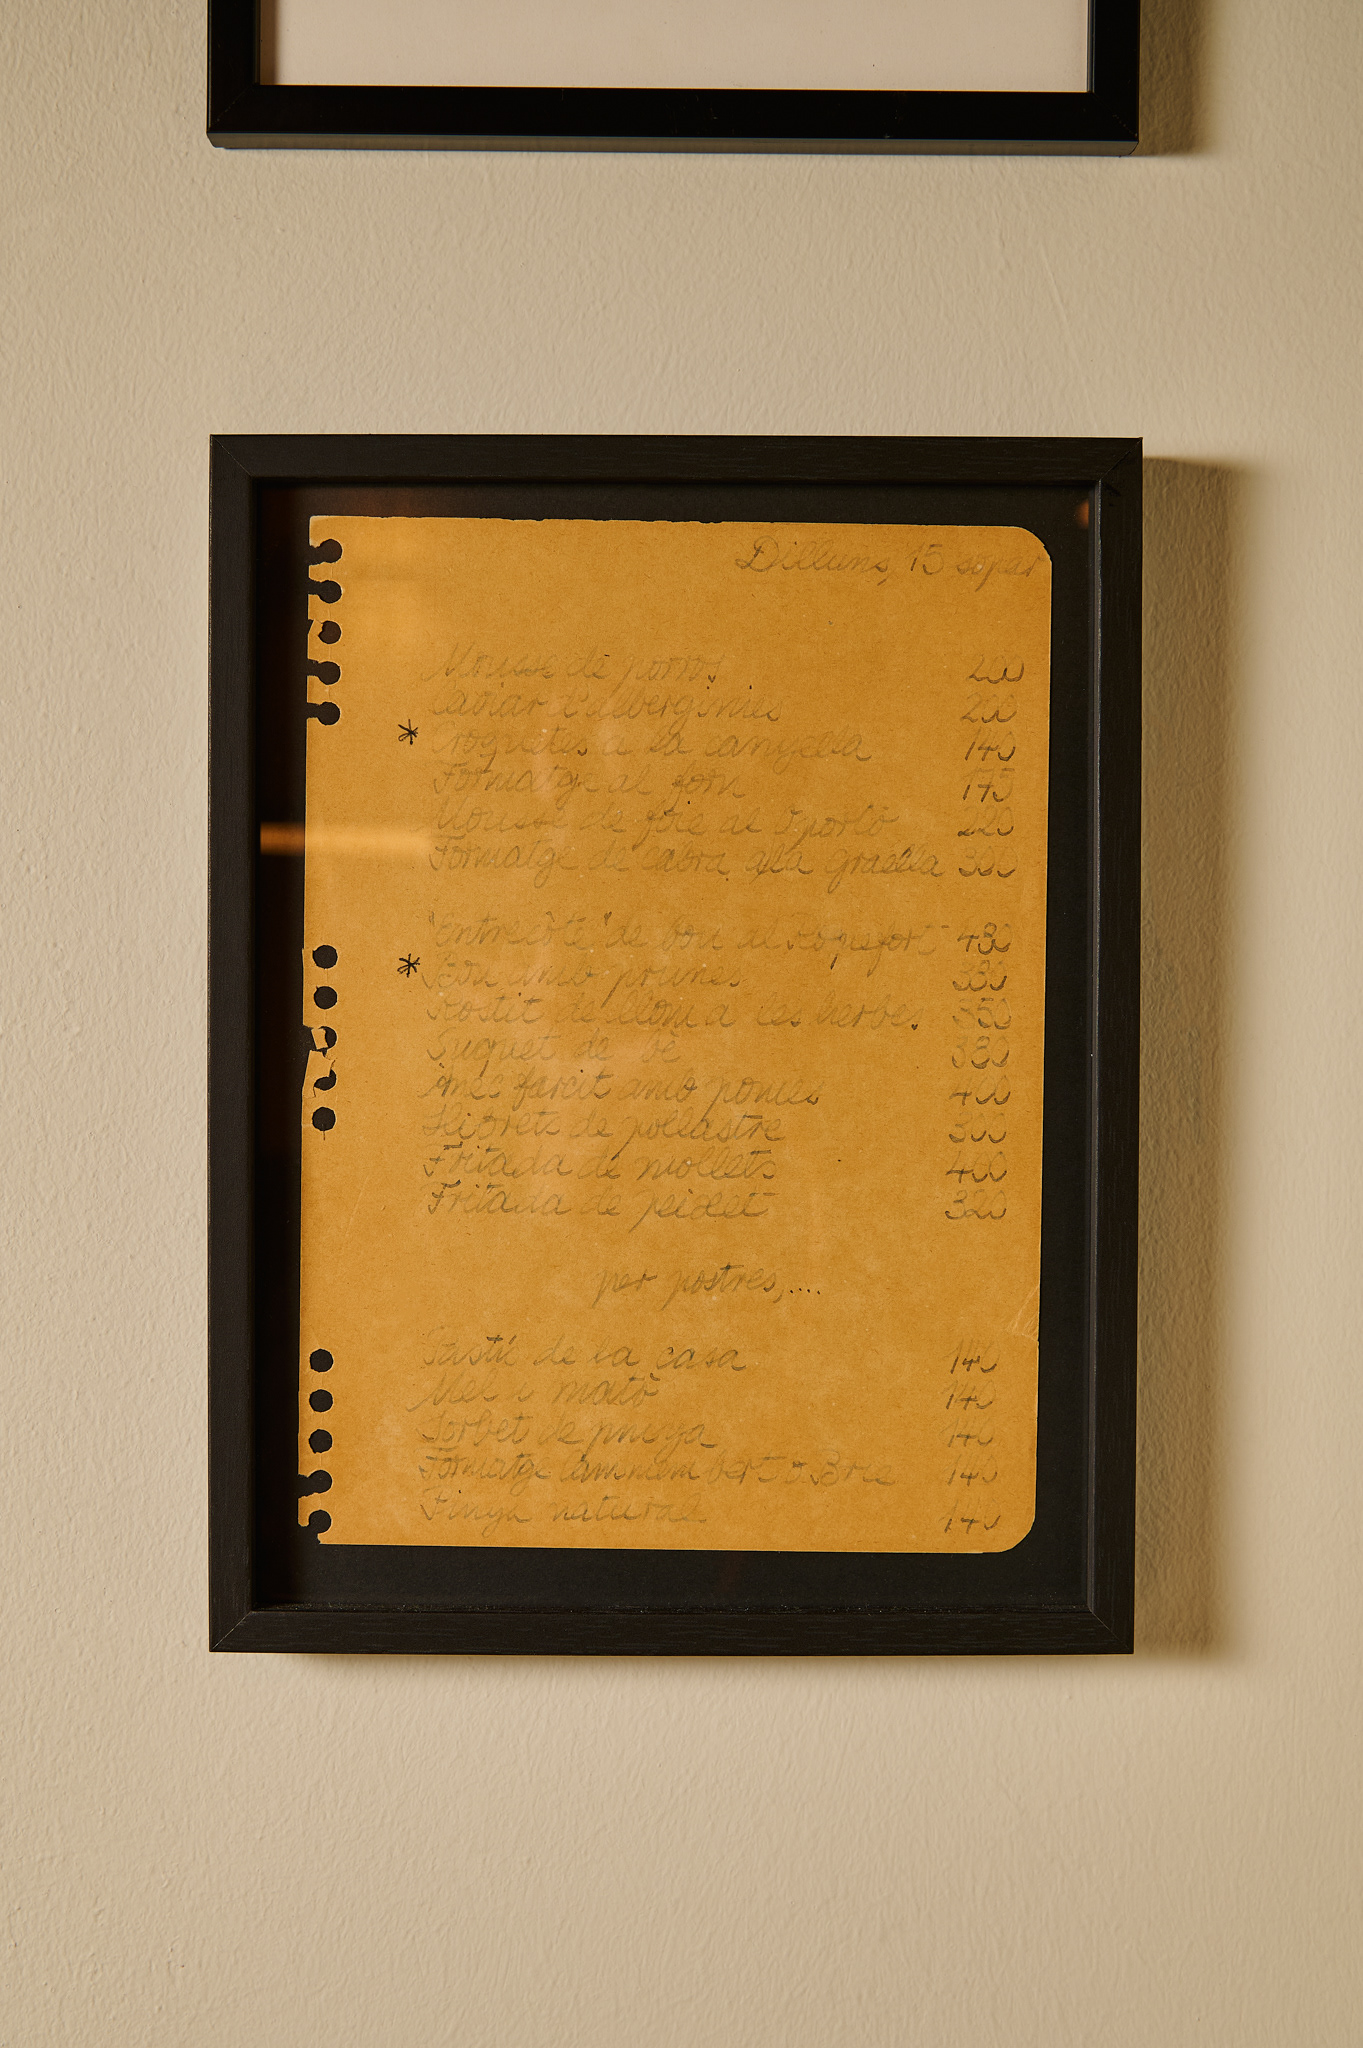 Dilluns, 15 sopar
Mousse de porros 200
Caviar d'albergínies 200
* Croquetes a la canyella 140
Formatge al forn 175
Mousse de foie al Oportò 220
Formatge de cabra a la graella 300
"Entrecôte" de bou al Roquefort 480
* Bou amb prunes 380
Rostit de llom a les herbes 350
Suquet de be 380
Ànec farcit amb pomes 400
Llibrets de pollastre 300
Fritada de mollets 400
Fritada de peixet 320
per postres,....
Pastís de la casa 140
Mel i mató 140
Sorbet de pinya 140
Formatge Cammembert o Brie 140
Pinya natural 140